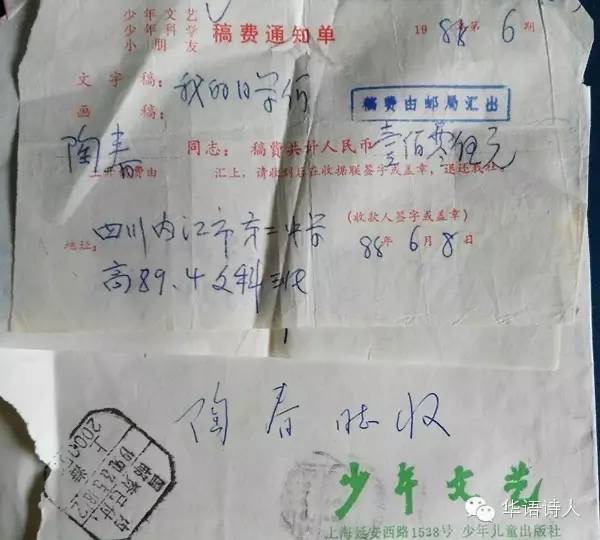 少年文艺
少年科学
小朋友
稿费通知单
1988年第6期
文字稿：我的同学们
画稿：
稿费由邮局汇出
陶春 同志：稿费共计人民币 壹佰零伍元
上开稿费由 汇上，请收到后在收据联签字或盖章，退还我社。
(收款人签字或盖章)
地址：四川内江市第二中学
88年6月8日
高89.4文科班
陶春 收
少年文艺
上海延安西路1538号 少年儿童出版社
华语诗人